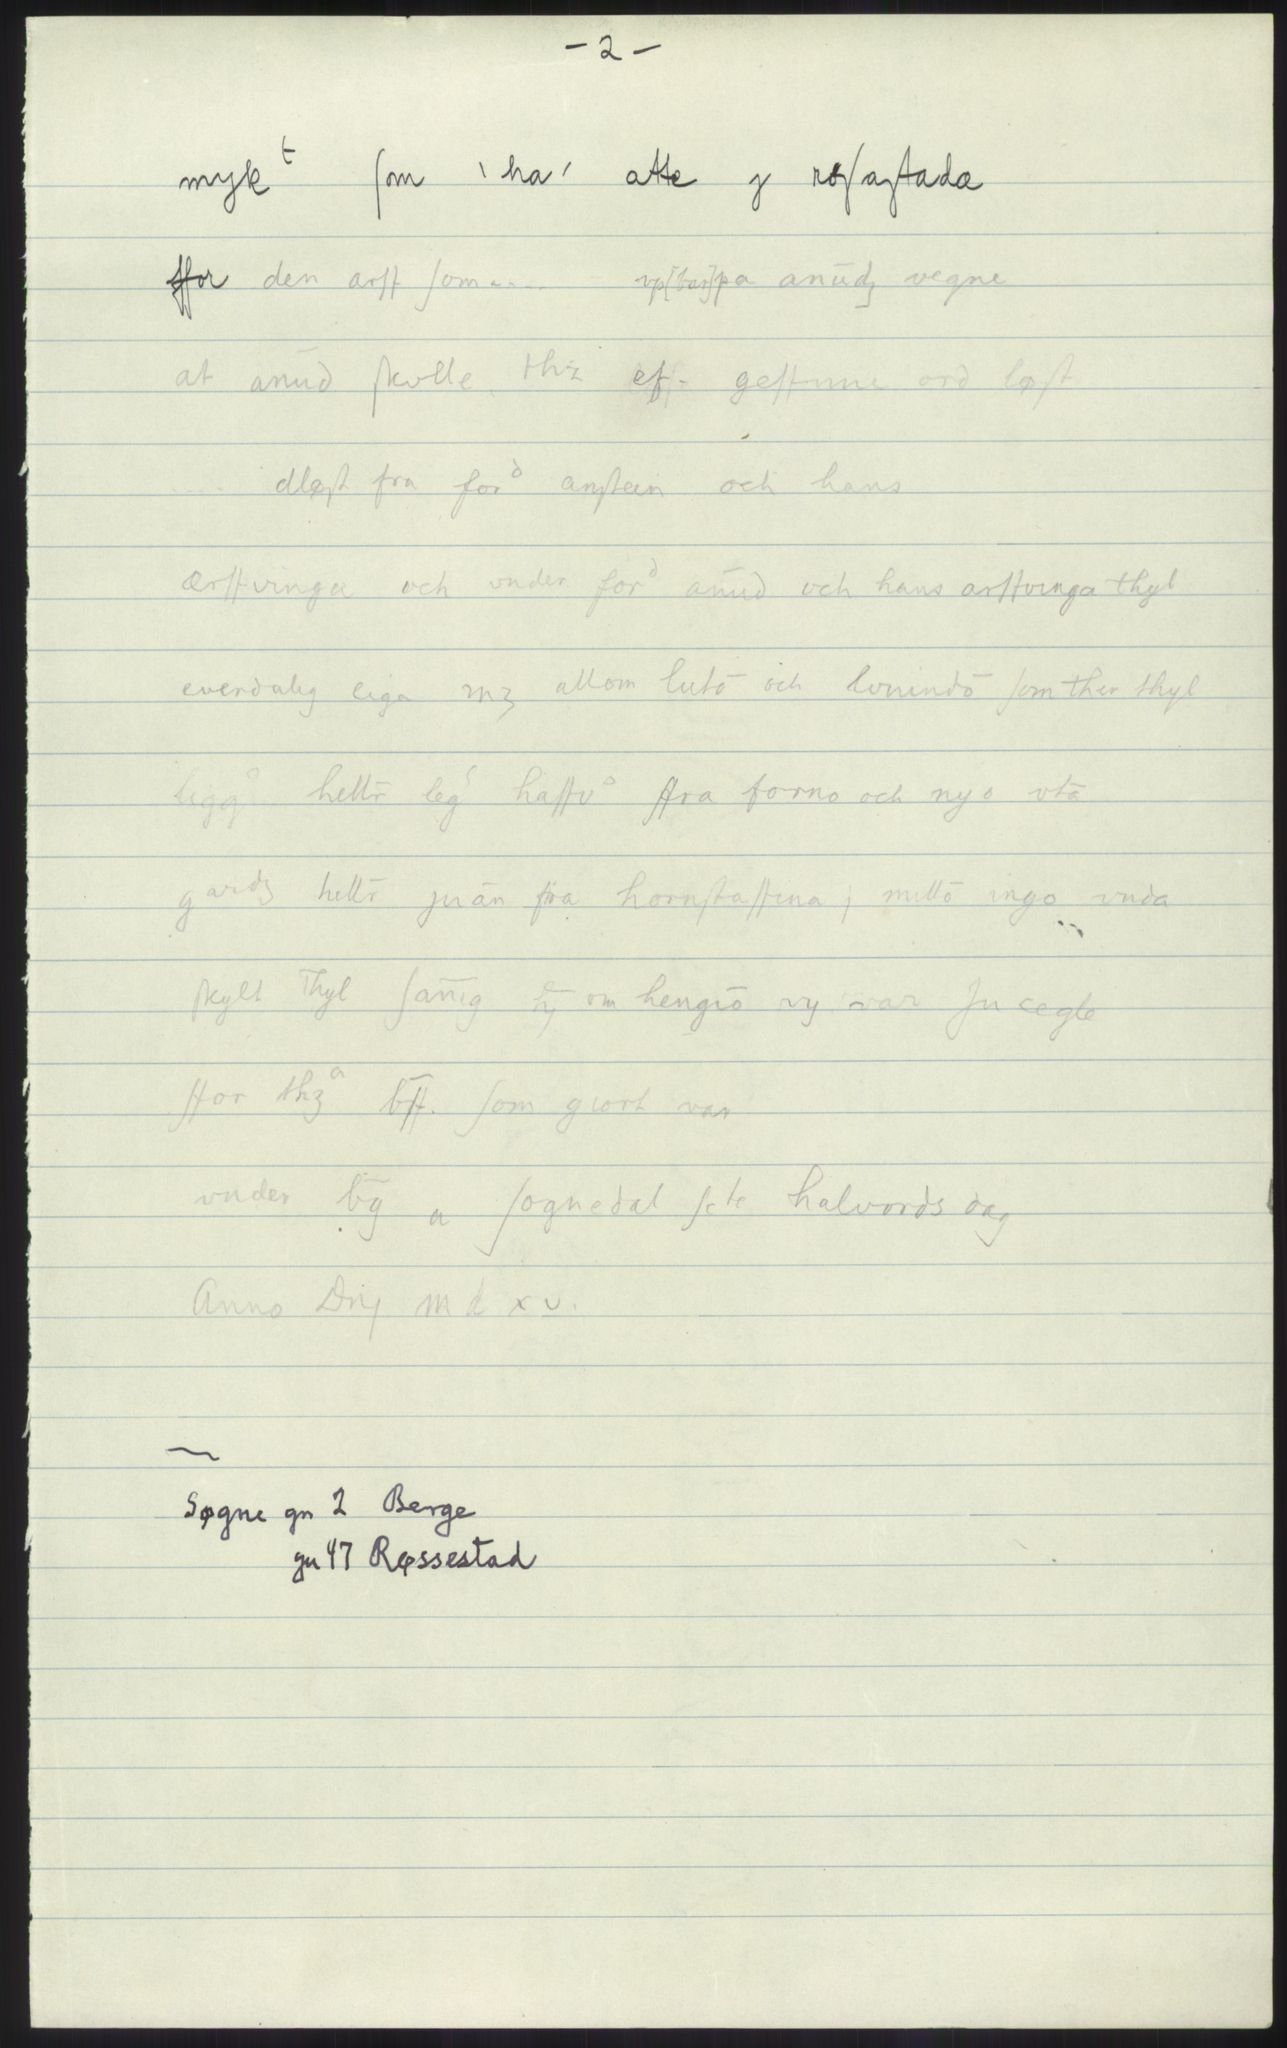 - 2 -
mykᵗ ſom 'ha' atte y røſaſtada
ffor den arff ſom .... vp[bar]pa anūdz vegne
at anūd ſkulle thz ef. geffmne ord løſt
.... dløſt fra forᵈ anſtein och hans
ærffvinga och vnder forᵈ anūd och hans arffvinga thyl
everdalig eiga mz allom lutō och lvnindō ſom ther thyl
ligg hellr leg haffv ffra forno och nyo vtā
gardz hellr jnān fra hornſtaffvna j mellō ingo vnda
ſkylt Thyl ſanīg hy om hengiō vy var Jncegle
ffor thzᵃ bff. ſom giort var
vnder bg a ſognedal ſcte halvords dag
Anno Dnj m d x v.
~
Søgne gn 2 Berge
gn 47 Røssestad